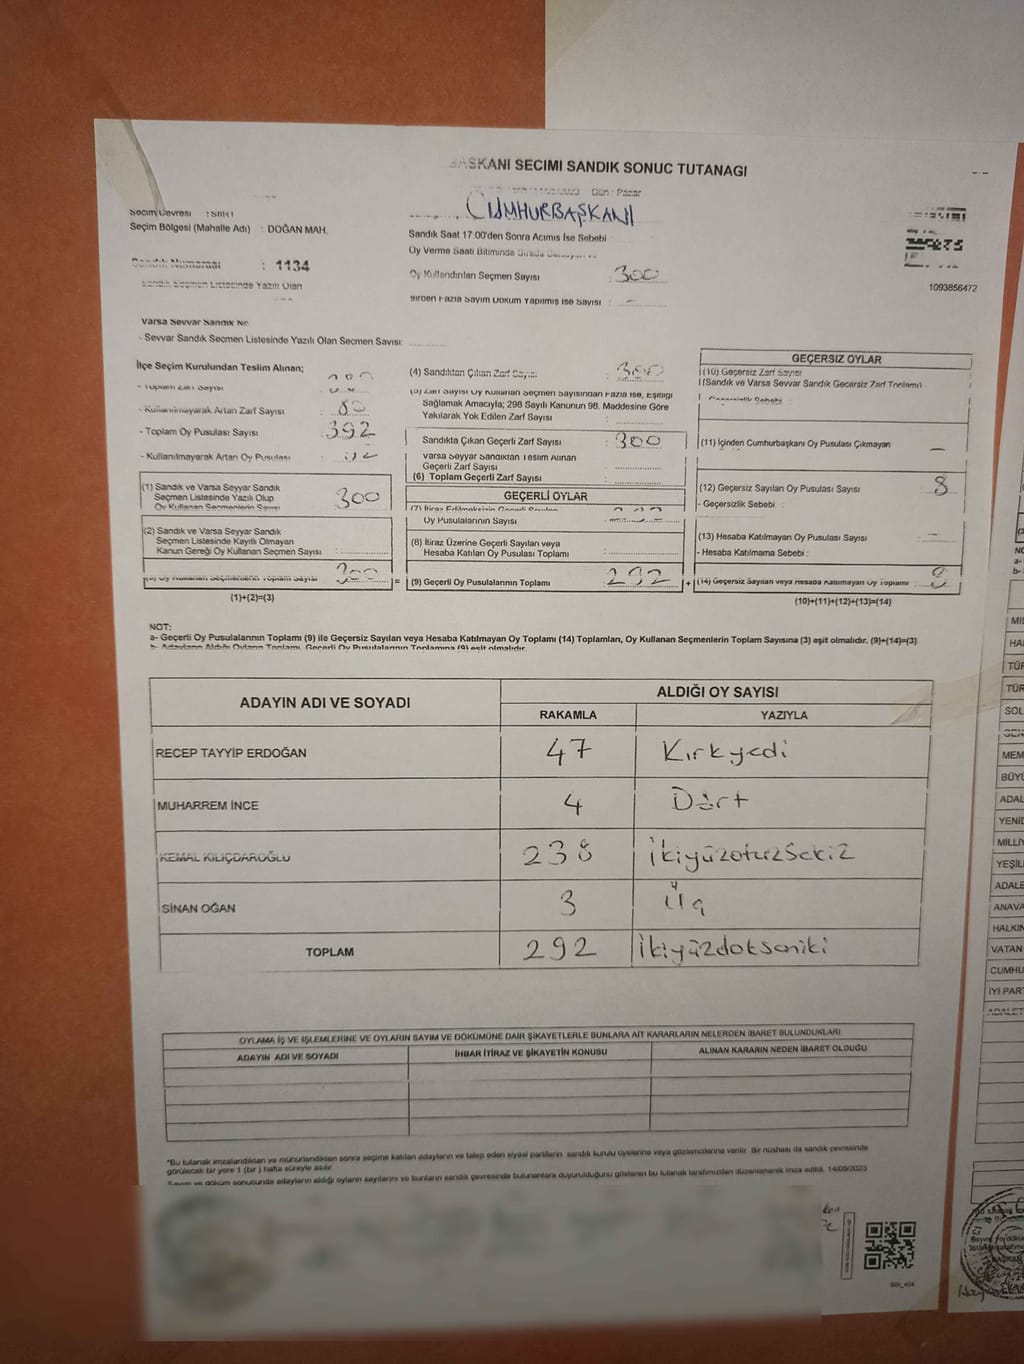 BAŞKANI SECIMI SANDIK SONUC TUTANAGI
Gün : Pazar
CUMHURBAŞKANI
Secim Cevresi : SIIRT
Seçim Bölgesi (Mahalle Adı) : DOĞAN MAH.
Sandık Numarası : 1134
Sandık Seçmen Listesinde Yazılı Olan
Sandık Saat 17:00'den Sonra Acımıs Ise Sebebi
Oy Verme Saati Bitiminde Sırada
Oy Kullandırılan Seçmen Sayısı : 300
Birden Fazla Sayım Dokum Yapılmış Ise Sayısı : -
1093856472
Varsa Sevvar Sandık No
- Sevvar Sandık Secmen Listesinde Yazılı Olan Secmen Savısı:
İlçe Seçim Kurulundan Teslim Alınan;
- Toplam Zarf Sayısı
- Kullanılmayarak Artan Zarf Sayısı : 80
- Toplam Oy Pusulası Sayısı : 392
- Kullanılmayarak Artan Oy Pusulası
(1) Sandık ve Varsa Seyyar Sandık
Seçmen Listesinde Yazılı Olup
Oy Kullanan Seçmenlerin Sayısı 300
(2) Sandık ve Varsa Seyyar Sandık
Seçmen Listesinde Kayıtlı Olmayan
Kanun Gereği Oy Kullanan Seçmen Sayısı :
(3) Oy Kullanan Seçmenlerin Toplam Sayısı 300
(1)+(2)=(3)
(4) Sandıktan Çıkan Zarf Sayısı : 300
(5) Zarf Sayısı Oy Kullanan Seçmen Sayısından Fazla Ise, Eşitliği
Sağlamak Amacıyla; 298 Sayılı Kanunun 98. Maddesine Göre
Yakılarak Yok Edilen Zarf Sayısı :
Sandıkta Çıkan Geçerli Zarf Sayısı : 300
Varsa Seyyar Sandıktan Teslim Alınan
Geçerli Zarf Sayısı
(6) Toplam Geçerli Zarf Sayısı
GEÇERLİ OYLAR
(7) İtiraz Edilmeksizin Geçerli Sayılan
Oy Pusulalarının Sayısı :
(8) İtiraz Üzerine Geçerli Sayılan veya
Hesaba Katılan Oy Pusulası Toplamı :
= (9) Geçerli Oy Pusulalarının Toplamı : 292
GEÇERSIZ OYLAR
(10) Geçersiz Zarf Sayısı
(Sandık ve Varsa Sevvar Sandık Gecersiz Zarf Toplamı)
- Geçersizlik Sebebi :
(11) İçinden Cumhurbaşkanı Oy Pusulası Çıkmayan -
(12) Geçersiz Sayılan Oy Pusulası Sayısı : 8
- Geçersizlik Sebebi :
(13) Hesaba Katılmayan Oy Pusulası Sayısı : -
- Hesaba Katılmama Sebebi :
+ (14) Geçersiz Sayılan veya Hesaba Katılmayan Oy Toplamı : 8
(10)+(11)+(12)+(13)=(14)
NOT:
a- Geçerli Oy Pusulalarının Toplamı (9) ile Geçersiz Sayılan veya Hesaba Katılmayan Oy Toplamı (14) Toplamları, Oy Kullanan Seçmenlerin Toplam Sayısına (3) eşit olmalıdır. (9)+(14)=(3)
b- Adayların Aldığı Oyların Toplamı, Geçerli Oy Pusulalarının Toplamına (9) eşit olmalıdır.
ADAYIN ADI VE SOYADI
ALDIĞI OY SAYISI
RAKAMLA YAZIYLA
RECEP TAYYİP ERDOĞAN 47 Kırkyedi
MUHARREM İNCE 4 Dört
KEMAL KILIÇDAROĞLU 238 İkiyüzotuzsekiz
SİNAN OĞAN 3 Üç
TOPLAM 292 İkiyüzdoksaniki
OYLAMA İŞ VE İŞLEMLERİNE VE OYLARIN SAYIM VE DÖKÜMÜNE DAİR ŞİKAYETLERLE BUNLARA AİT KARARLARIN NELERDEN İBARET BULUNDUKLARI
ADAYIN ADI VE SOYADI İHBAR İTİRAZ VE ŞİKAYETİN KONUSU ALINAN KARARIN NEDEN İBARET OLDUĞU
"Bu tutanak imzalandıktan ve mühürlendikten sonra seçime katılan adayların ve talep eden siyasi partilerin sandık kurulu üyelerine veya gözlemcilerine verilir. Bir nüshası da sandık çevresinde
görülecek bir yere 1 (bir ) hafta süreyle asılır.
Sayım ve döküm sonucunda adayların aldığı oyların sayılarını ve bunların sandık çevresinde bulunanlara duyurulduğunu gösteren bu tutanak tarafımızdan düzenlenerek imza edildi. 14/05/2023
TÜR
TÜR
SOL
MEM
BÜYÜ
ADAL
YENİD
MİLLİ
YEŞİL
ADALE
ANAVA
HALKIN
VATAN
CUMHU
İYİ PART
ADALET